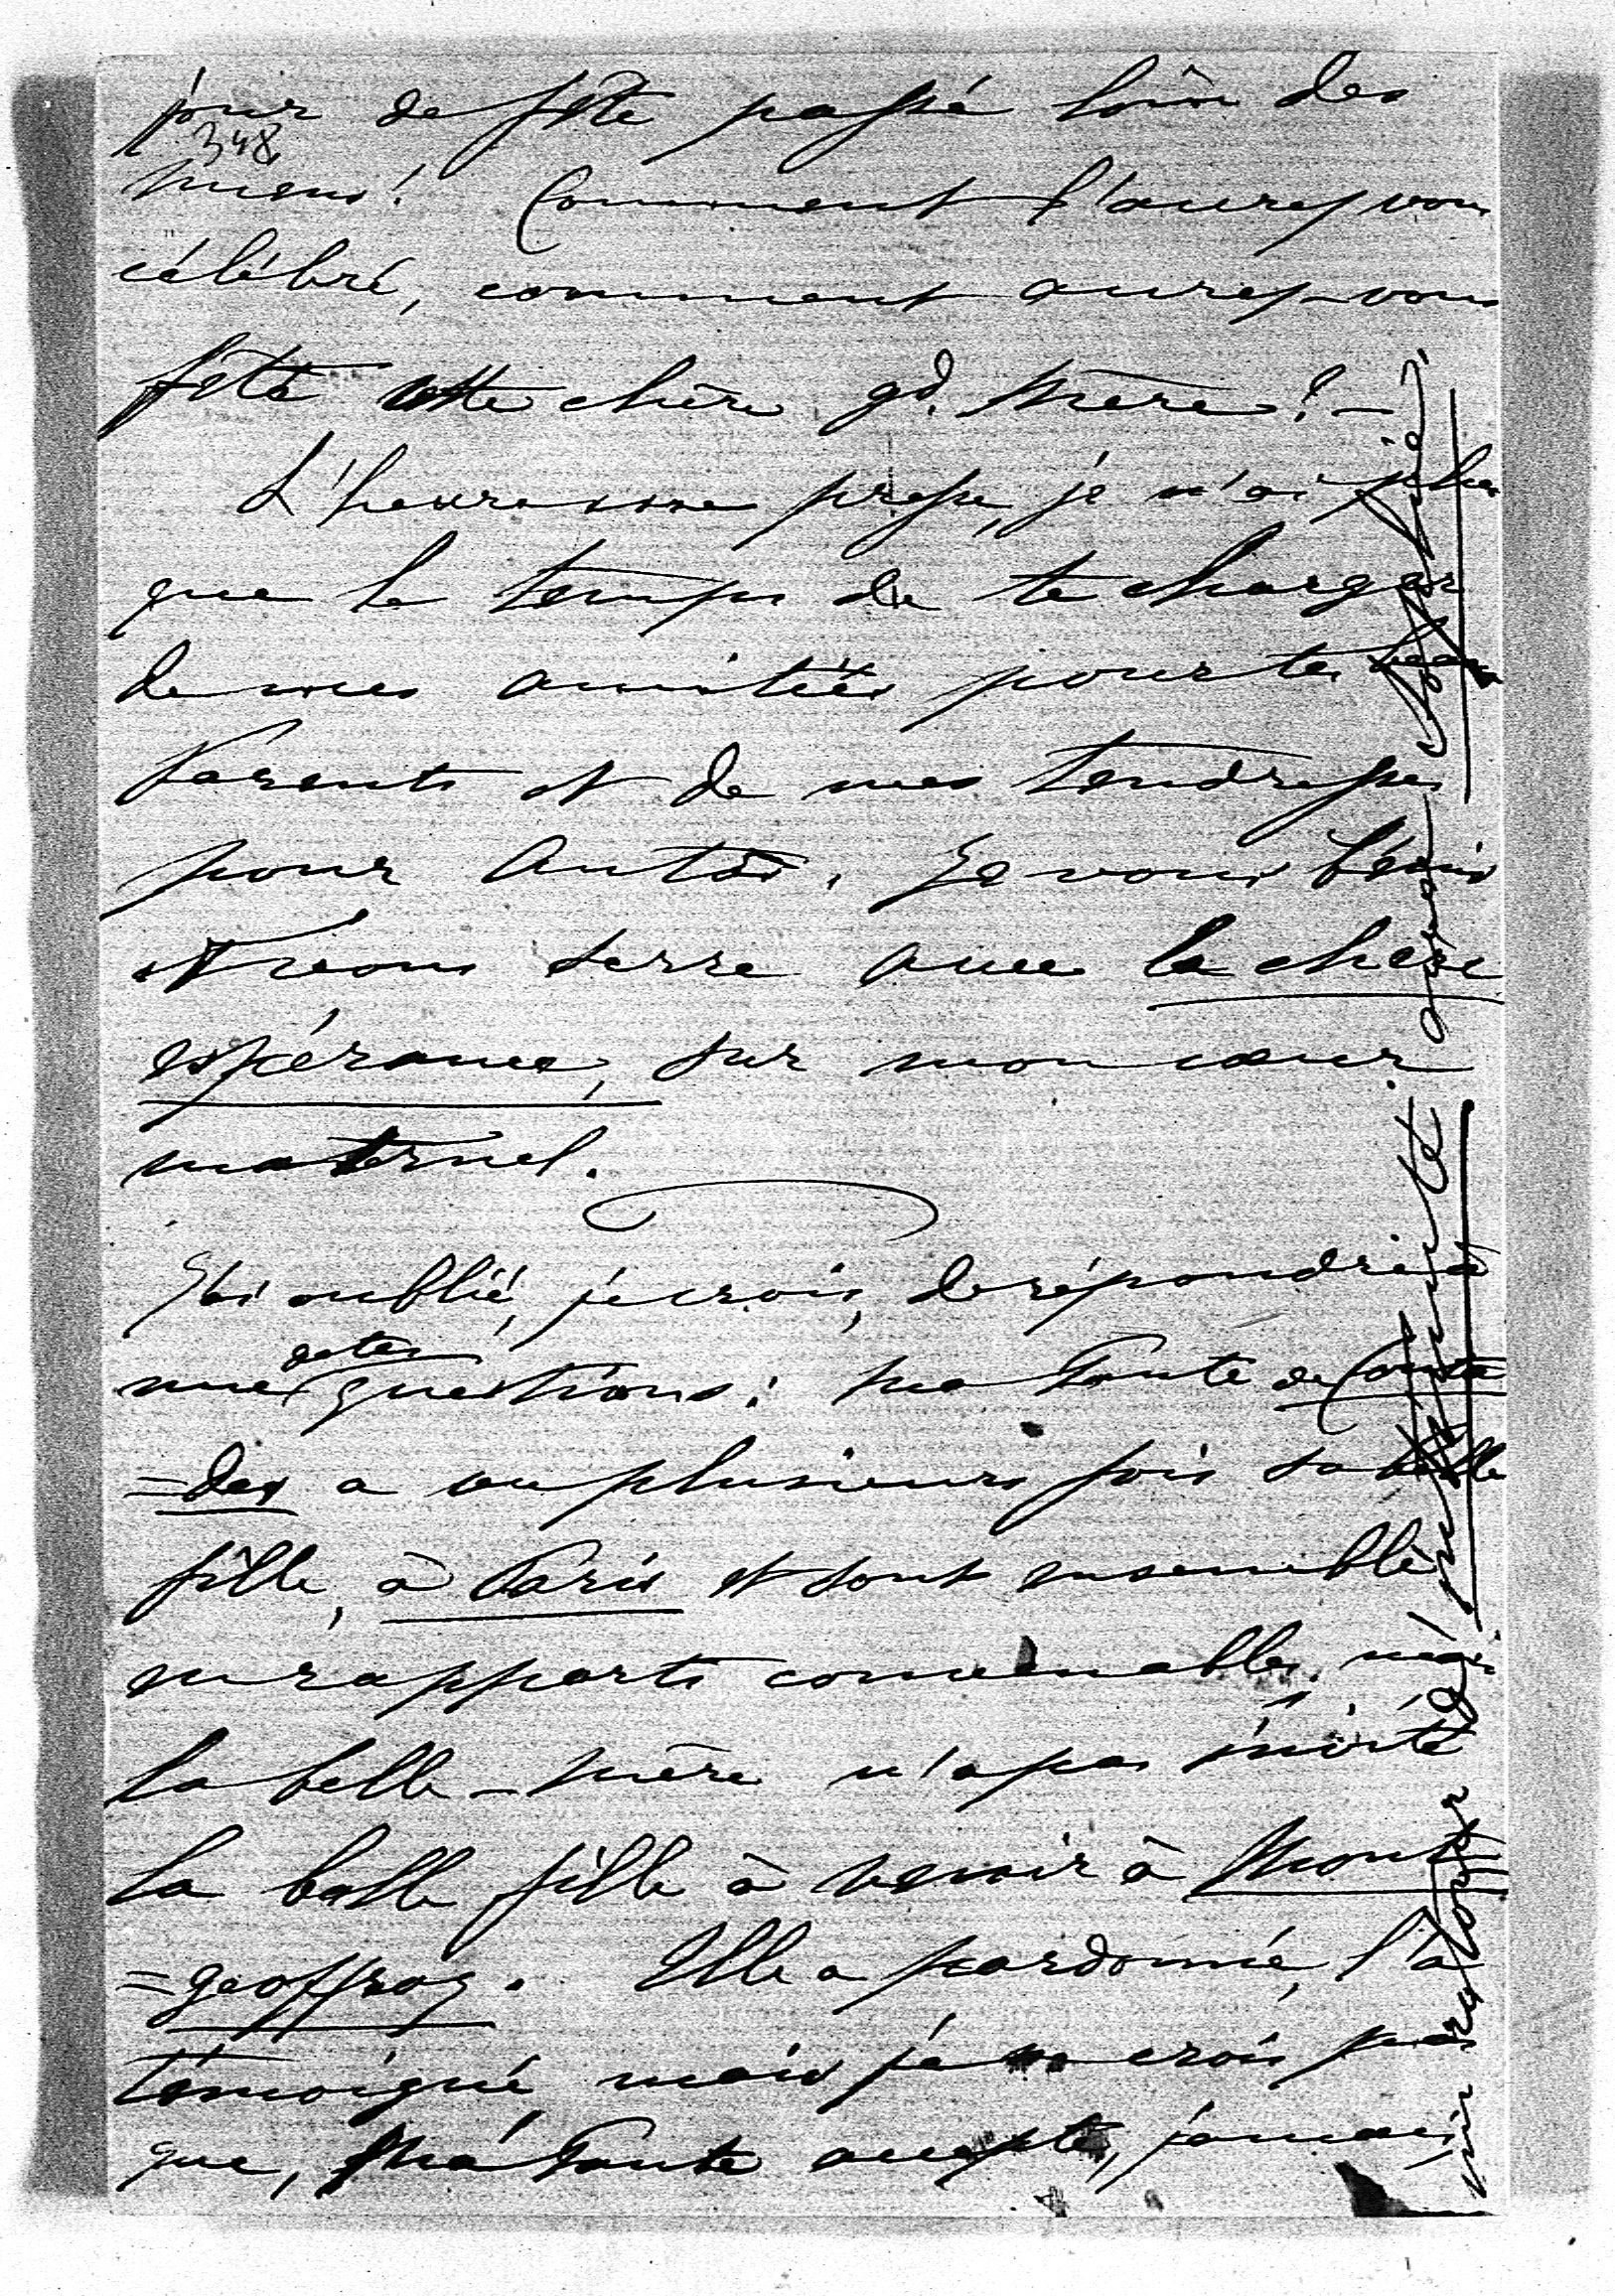 jour de fête passé loin des
348
miens! Comment l'aurez vous
célébré, comment aurez-vous
fêté cette chère gd. Mère? —
L'heure me presse, je n'ai plus
que le temps de te charger
de mes amitiés pour tes beaux
Parents et de mes tendresses
pour Antoine. Je vous bénis
et vous serre avec la chère
espérance, sur mon cœur
maternel.
J'ai oublié, je crois, de répondre à
une de tes questions: ma Tante de Conta
=des a vu plusieurs fois sa belle
fille, à Paris et sont ensemble
en rapports convenables, mais
la belle-mère n'a pas invité
la belle fille à venir à Mont
=geoffroy. Elle a pardonné, l'a
témoigné, mais je ne crois pas
que, Ma Tante accepte, jamais,
ni revoir ni
intimité
avec